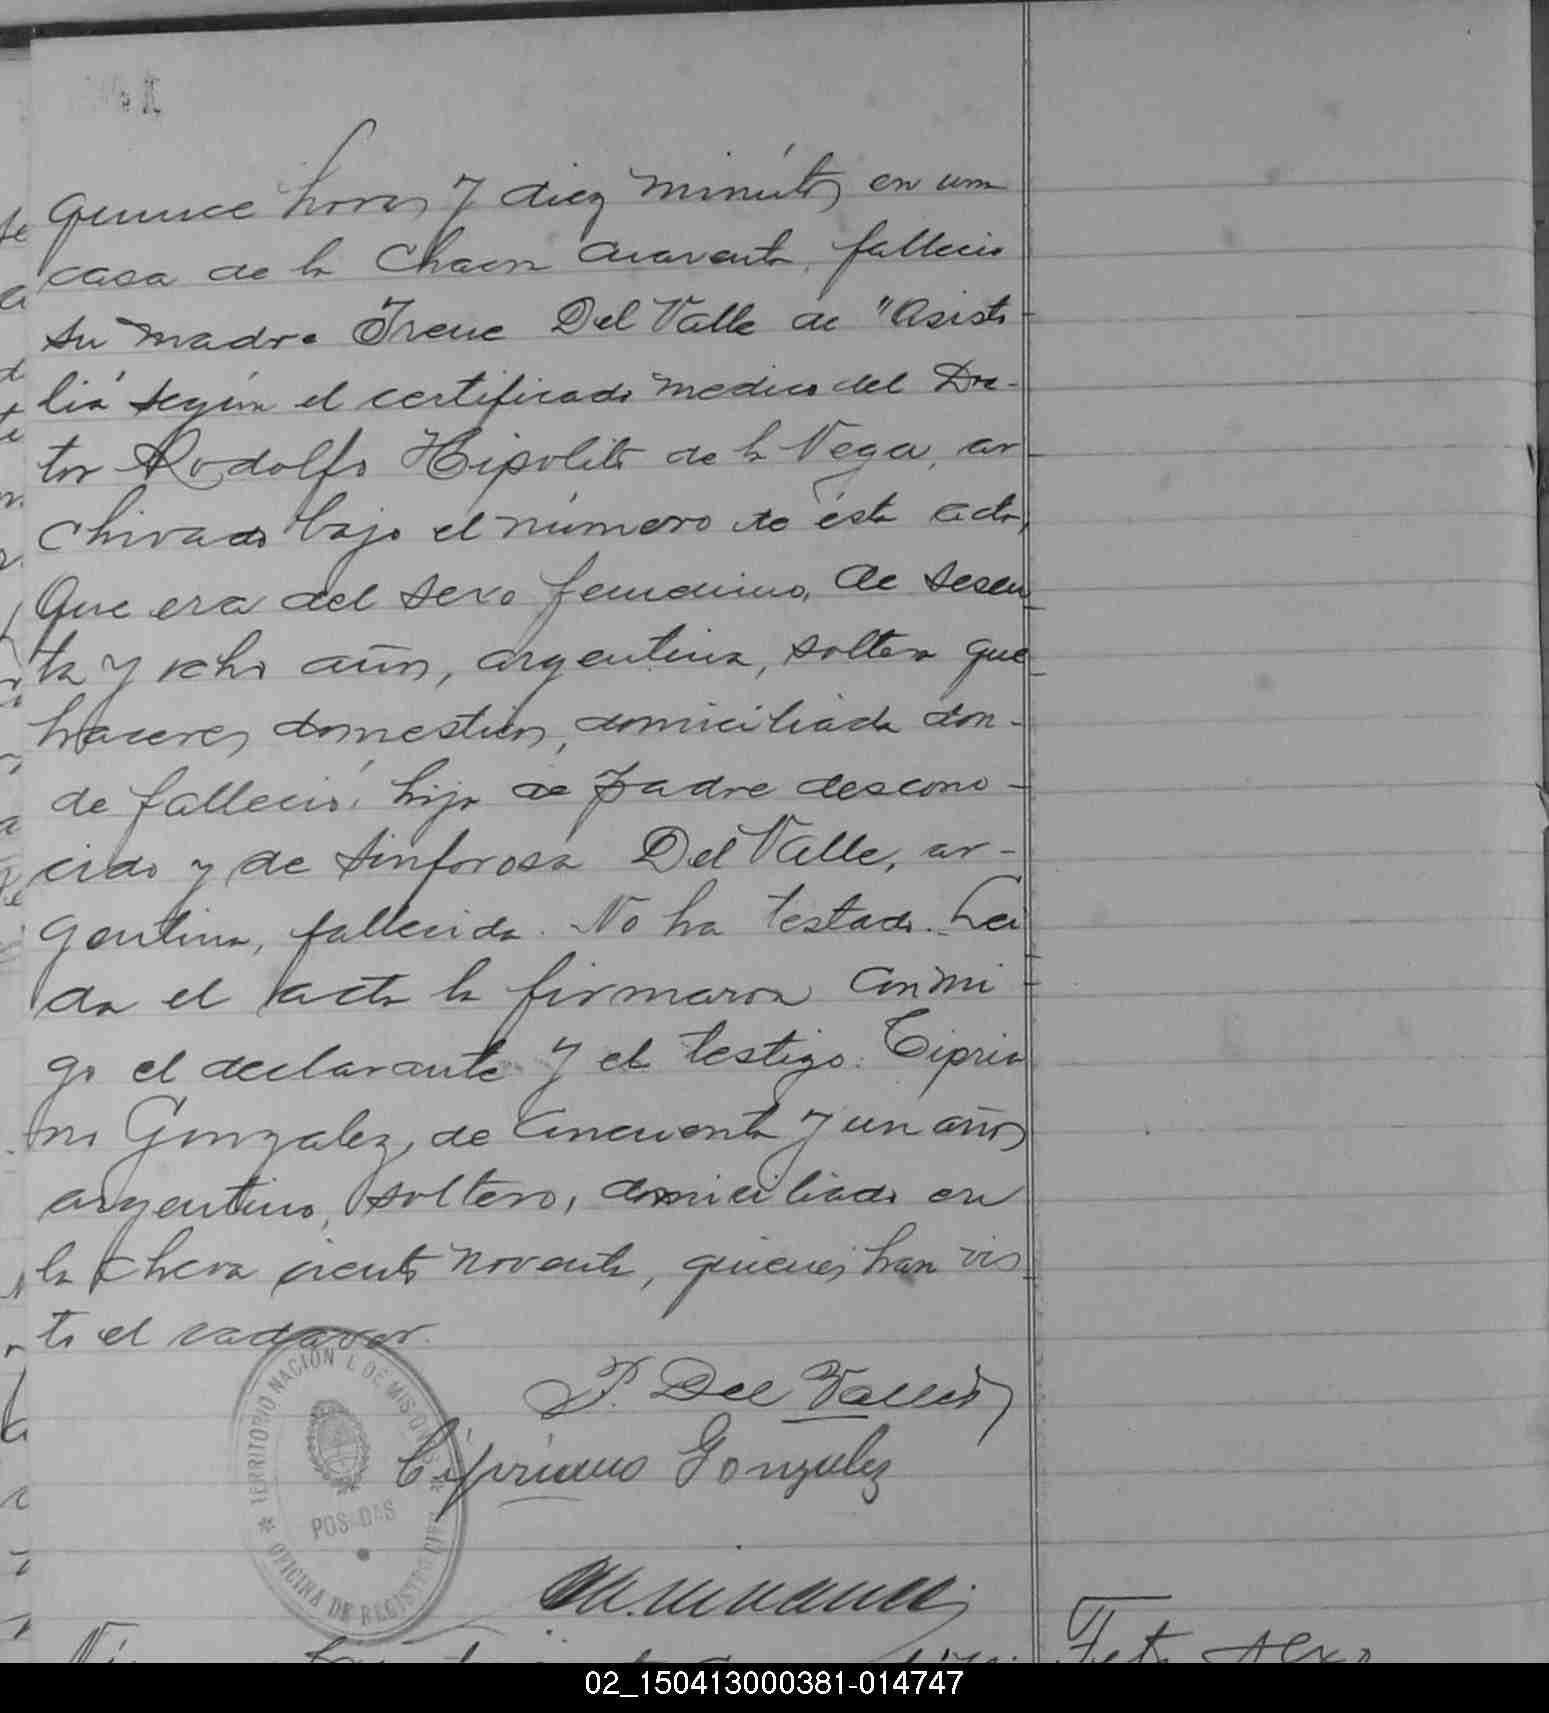 quince horas y diez minutos en una
casa de la Chacra cuarenta, fallecio
su madre Irene Del Valle de "Asisto
lia" según el certificado medico del Doc-
tor Rodolfo Hipolito de la Vega, ar
chivado bajo el número de ésta acta,
Que era del sexo femenino, de sesen
ta y ocho años, argentina, soltera que
haceres domesticos, domiciliada don-
de falleció, hija de padre descono-
cido y de Sinforosa Del Valle, ar-
gentina, fallecida. No ha testado. Lei
da el acta la firmaron conmi-
go el declarante y el testigo: Cipria
no Gonzalez, de cincuenta y un años
argentino, soltero, domiciliado en
la chcra ciento noventa, quienes han vis
to el cadaver.
P. Del Valle
Cipriano Gonzalez
TERRITORIO NACIONAL DE MISIONES
POSADAS
OFICINA DE REGISTRO CIVIL
02_150413000381-014747